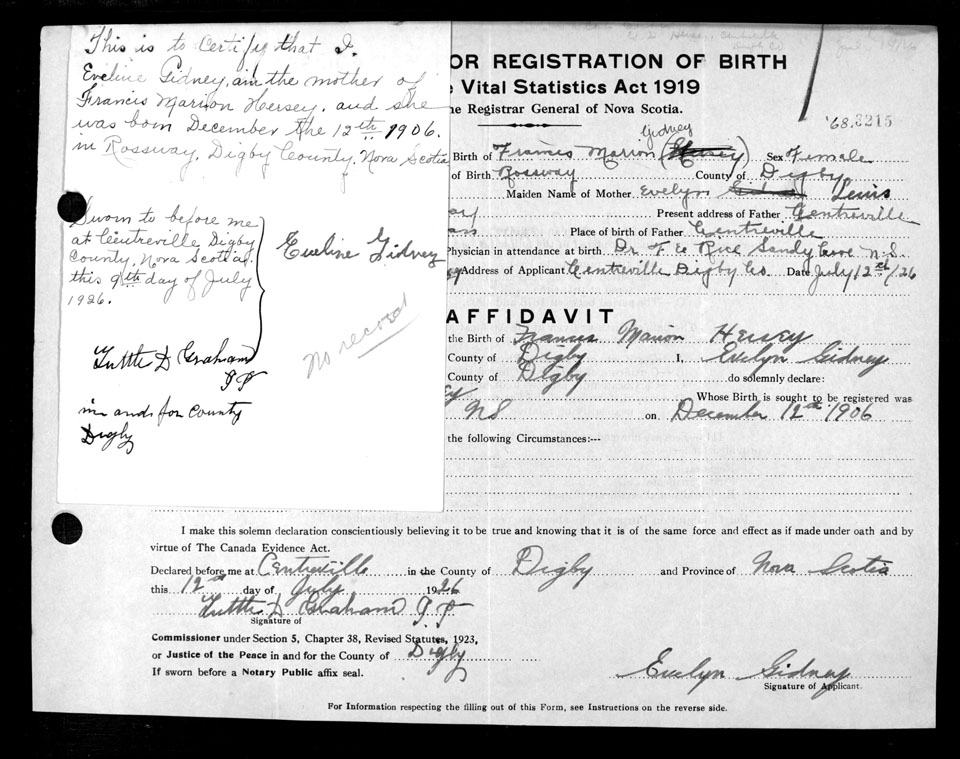 This is to Certify that I.
Eveline Gidney, am the mother of
Francis Marion Hersey. and she
was born December the 12th 1906.
in Rossway, Digby County, Nova Scotia
Sworn to before me
at Centreville Digby
County, Nova Scotia.
this 9th day of July
1926.
Eveline Gidney
No record
Tuttle D Graham
J P
in and for County
Digby
OR REGISTRATION OF BIRTH
Vital Statistics Act 1919
he Registrar General of Nova Scotia.
'68.3215
Gidney
Birth of Francis Marion (Hersey) Sex Female
of Birth Rossway County of Digby
Maiden Name of Mother Evelyn Gidney Lewis
Present address of Father Centreville
Place of birth of Father Centreville
Physician in attendance at birth Dr. F E Rice Sandy Cove N.S.
Address of Applicant Centreville Digby Co. Date July 12th/26
AFFIDAVIT
the Birth of Francis Marion Hersey
County of Digby I, Evelyn Gidney
County of Digby do solemnly declare:
Whose Birth is sought to be registered was
NS on December 12th 1906
the following Circumstances:---
I make this solemn declaration conscientiously believing it to be true and knowing that it is of the same force and effect as if made under oath and by
virtue of The Canada Evidence Act.
Declared before me at Centreville in the County of Digby and Province of Nova Scotia
this 12th day of July 1926
Tuttle D Graham J.P.
Signature of
Commissioner under Section 5, Chapter 38, Revised Statutes, 1923,
or Justice of the Peace in and for the County of Digby
If sworn before a Notary Public affix seal.
Evelyn Gidney
Signature of Applicant.
For Information respecting the filling out of this Form, see Instructions on the reverse side.